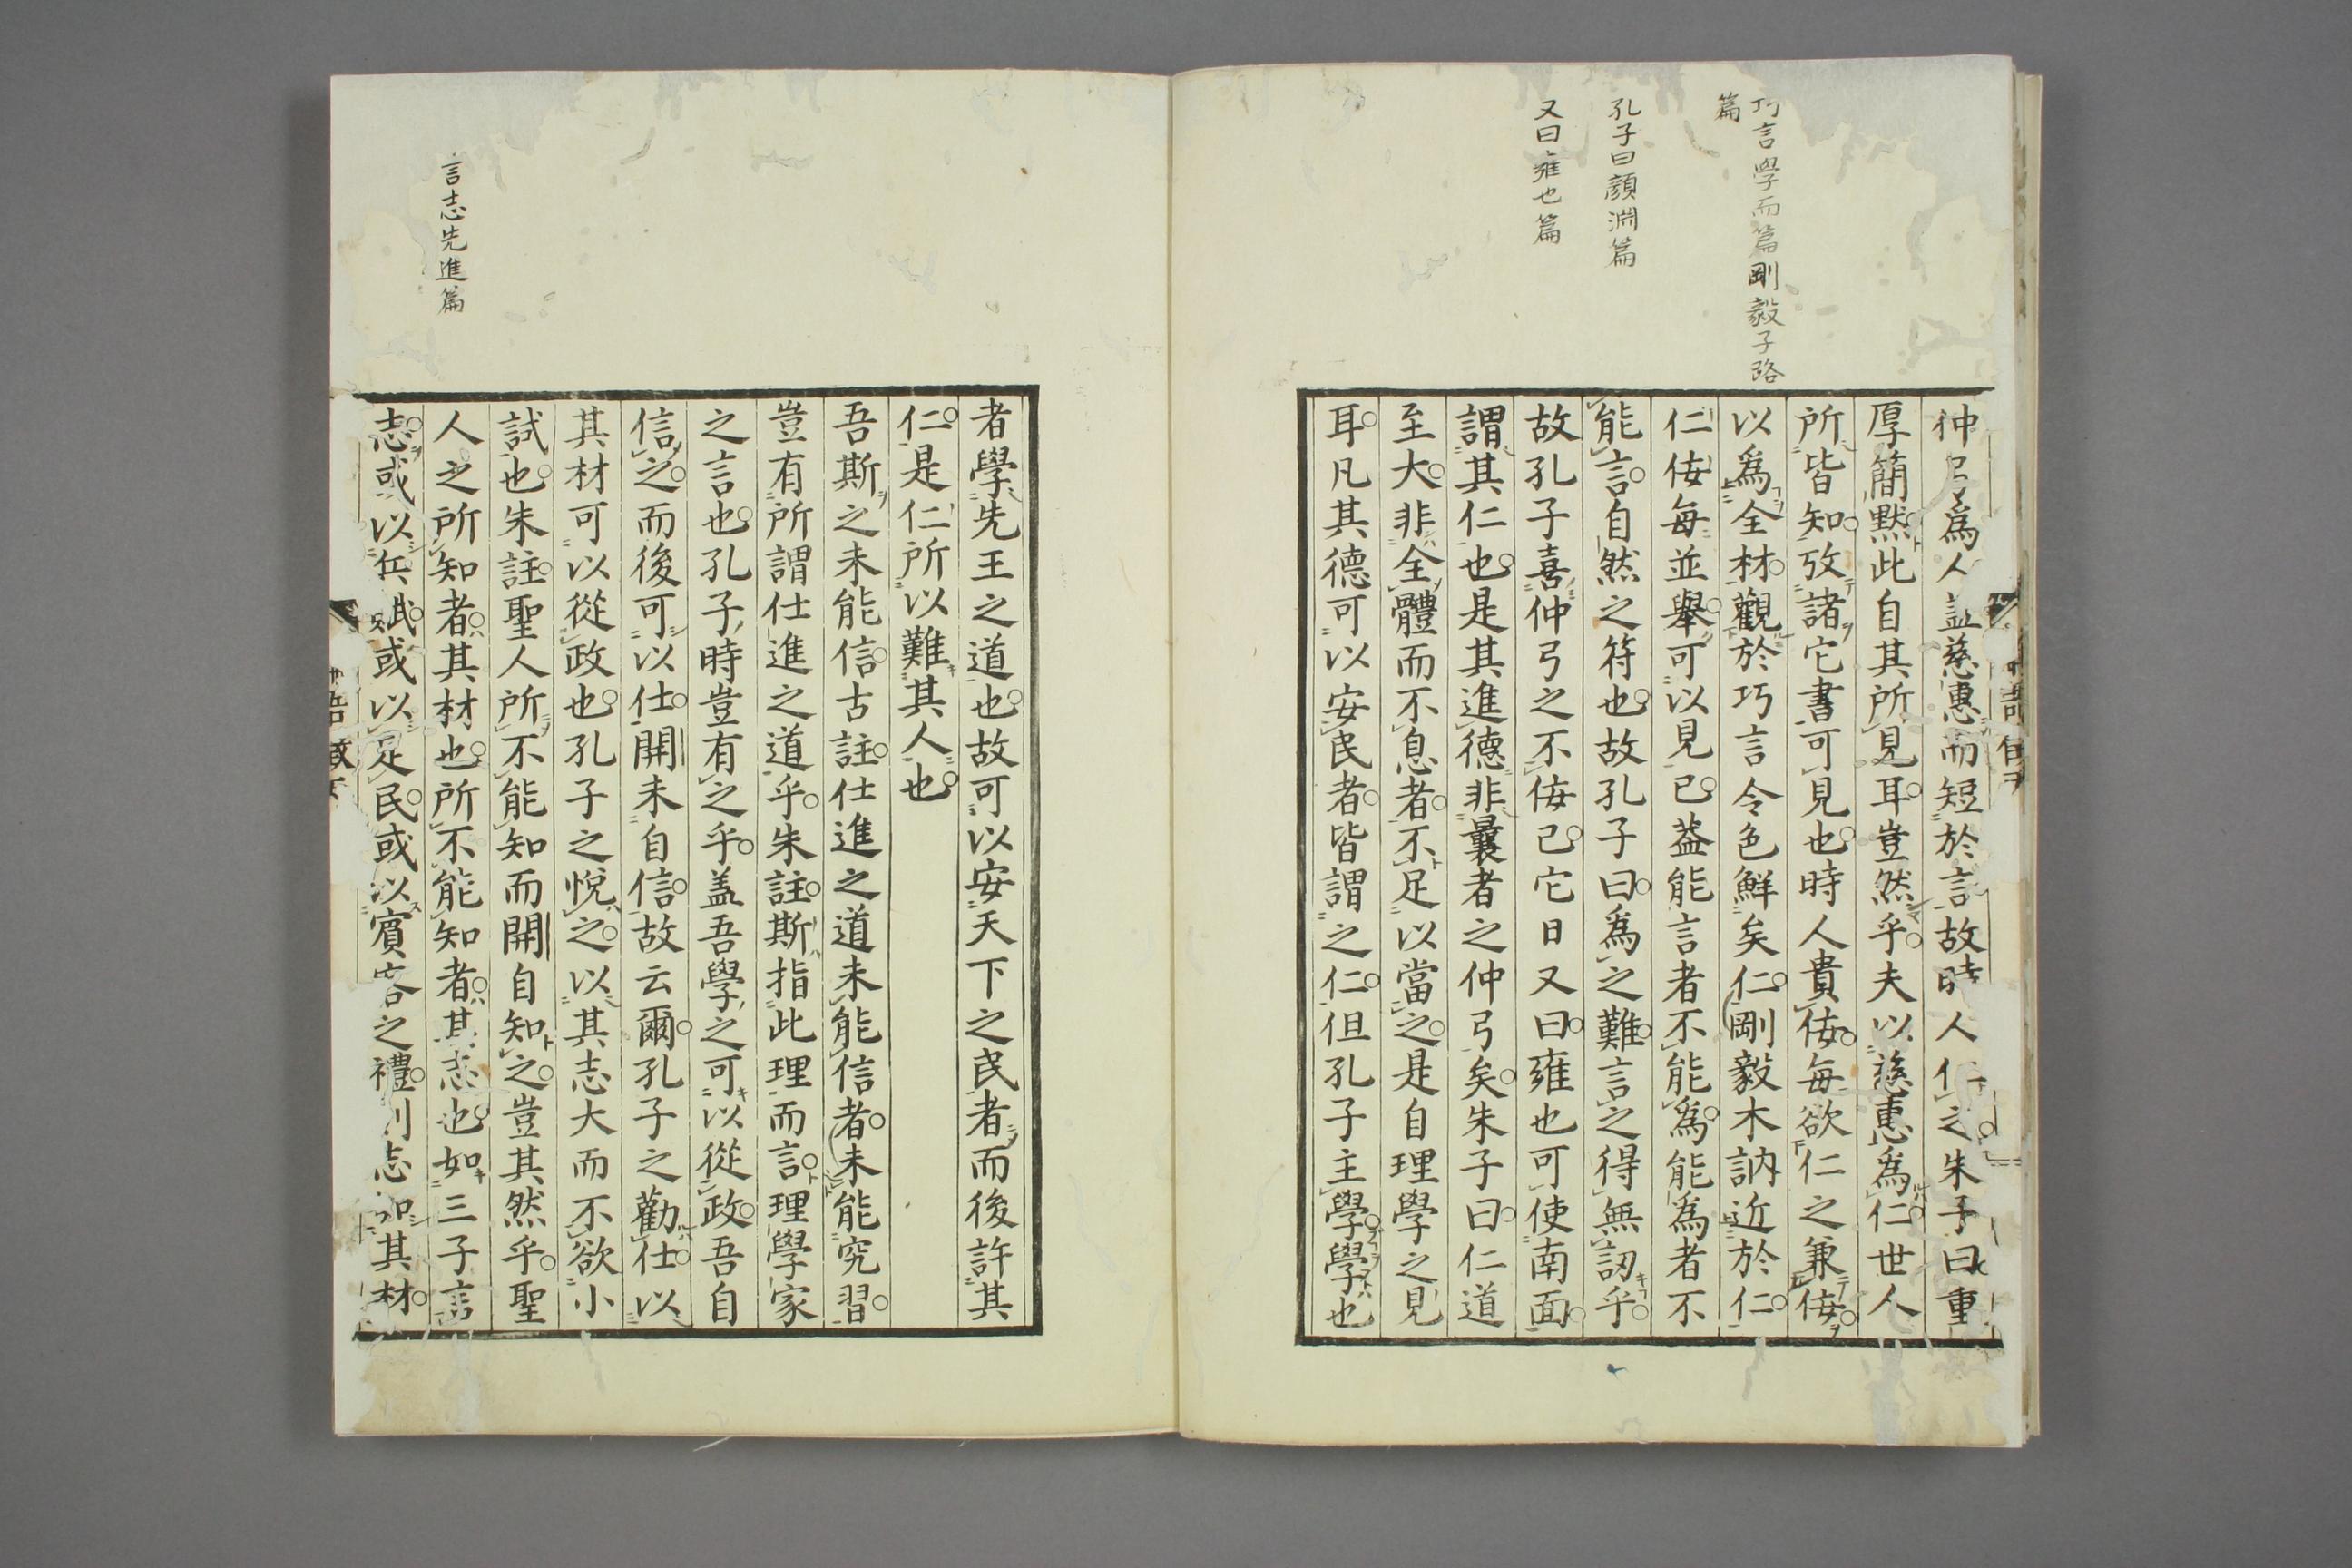 巧言學而篇剛毅子路
篇
孔子曰顏淵篇
又曰雍也篇
仲弓爲人蓋慈惠而短於言故時人仁之朱子曰重
厚簡默此自其所見耳豈然乎夫以慈惠爲仁世人
所皆知攷諸它書可見也時人貴佞每欲仁之兼佞
以爲全材觀於巧言令色鮮矣仁剛毅木訥近於仁
仁佞每並舉可以見已蓋能言者不能爲能爲者不
能言自然之符也故孔子曰爲之難言之得無訒乎
故孔子喜仲弓之不佞已它日又曰雍也可使南面
謂其仁也是其進德非曩者之仲弓矣朱子曰仁道
至大非全體而不息者不足以當之是自理學之見
耳凡其德可以安民者皆謂之仁但孔子主學學也
者學先王之道也故可以安天下之民者而後許其
仁是仁所以難其人也
吾斯之未能信古註仕進之道未能信者未能究習
豈有所謂仕進之道乎朱註斯指此理而言理學家
之言也孔子時豈有之乎盖吾學之可以從政吾自
信之而後可以仕開未自信故云爾孔子之勸仕以
其材可以從政也孔子之悅之以其志大而不欲小
試也朱註聖人所不能知而開自知之豈其然乎聖
人之所知者其材也所不能知者其志也如三子言
志或以兵賦或以足民或以賓客之禮則志如其材
言志先進篇